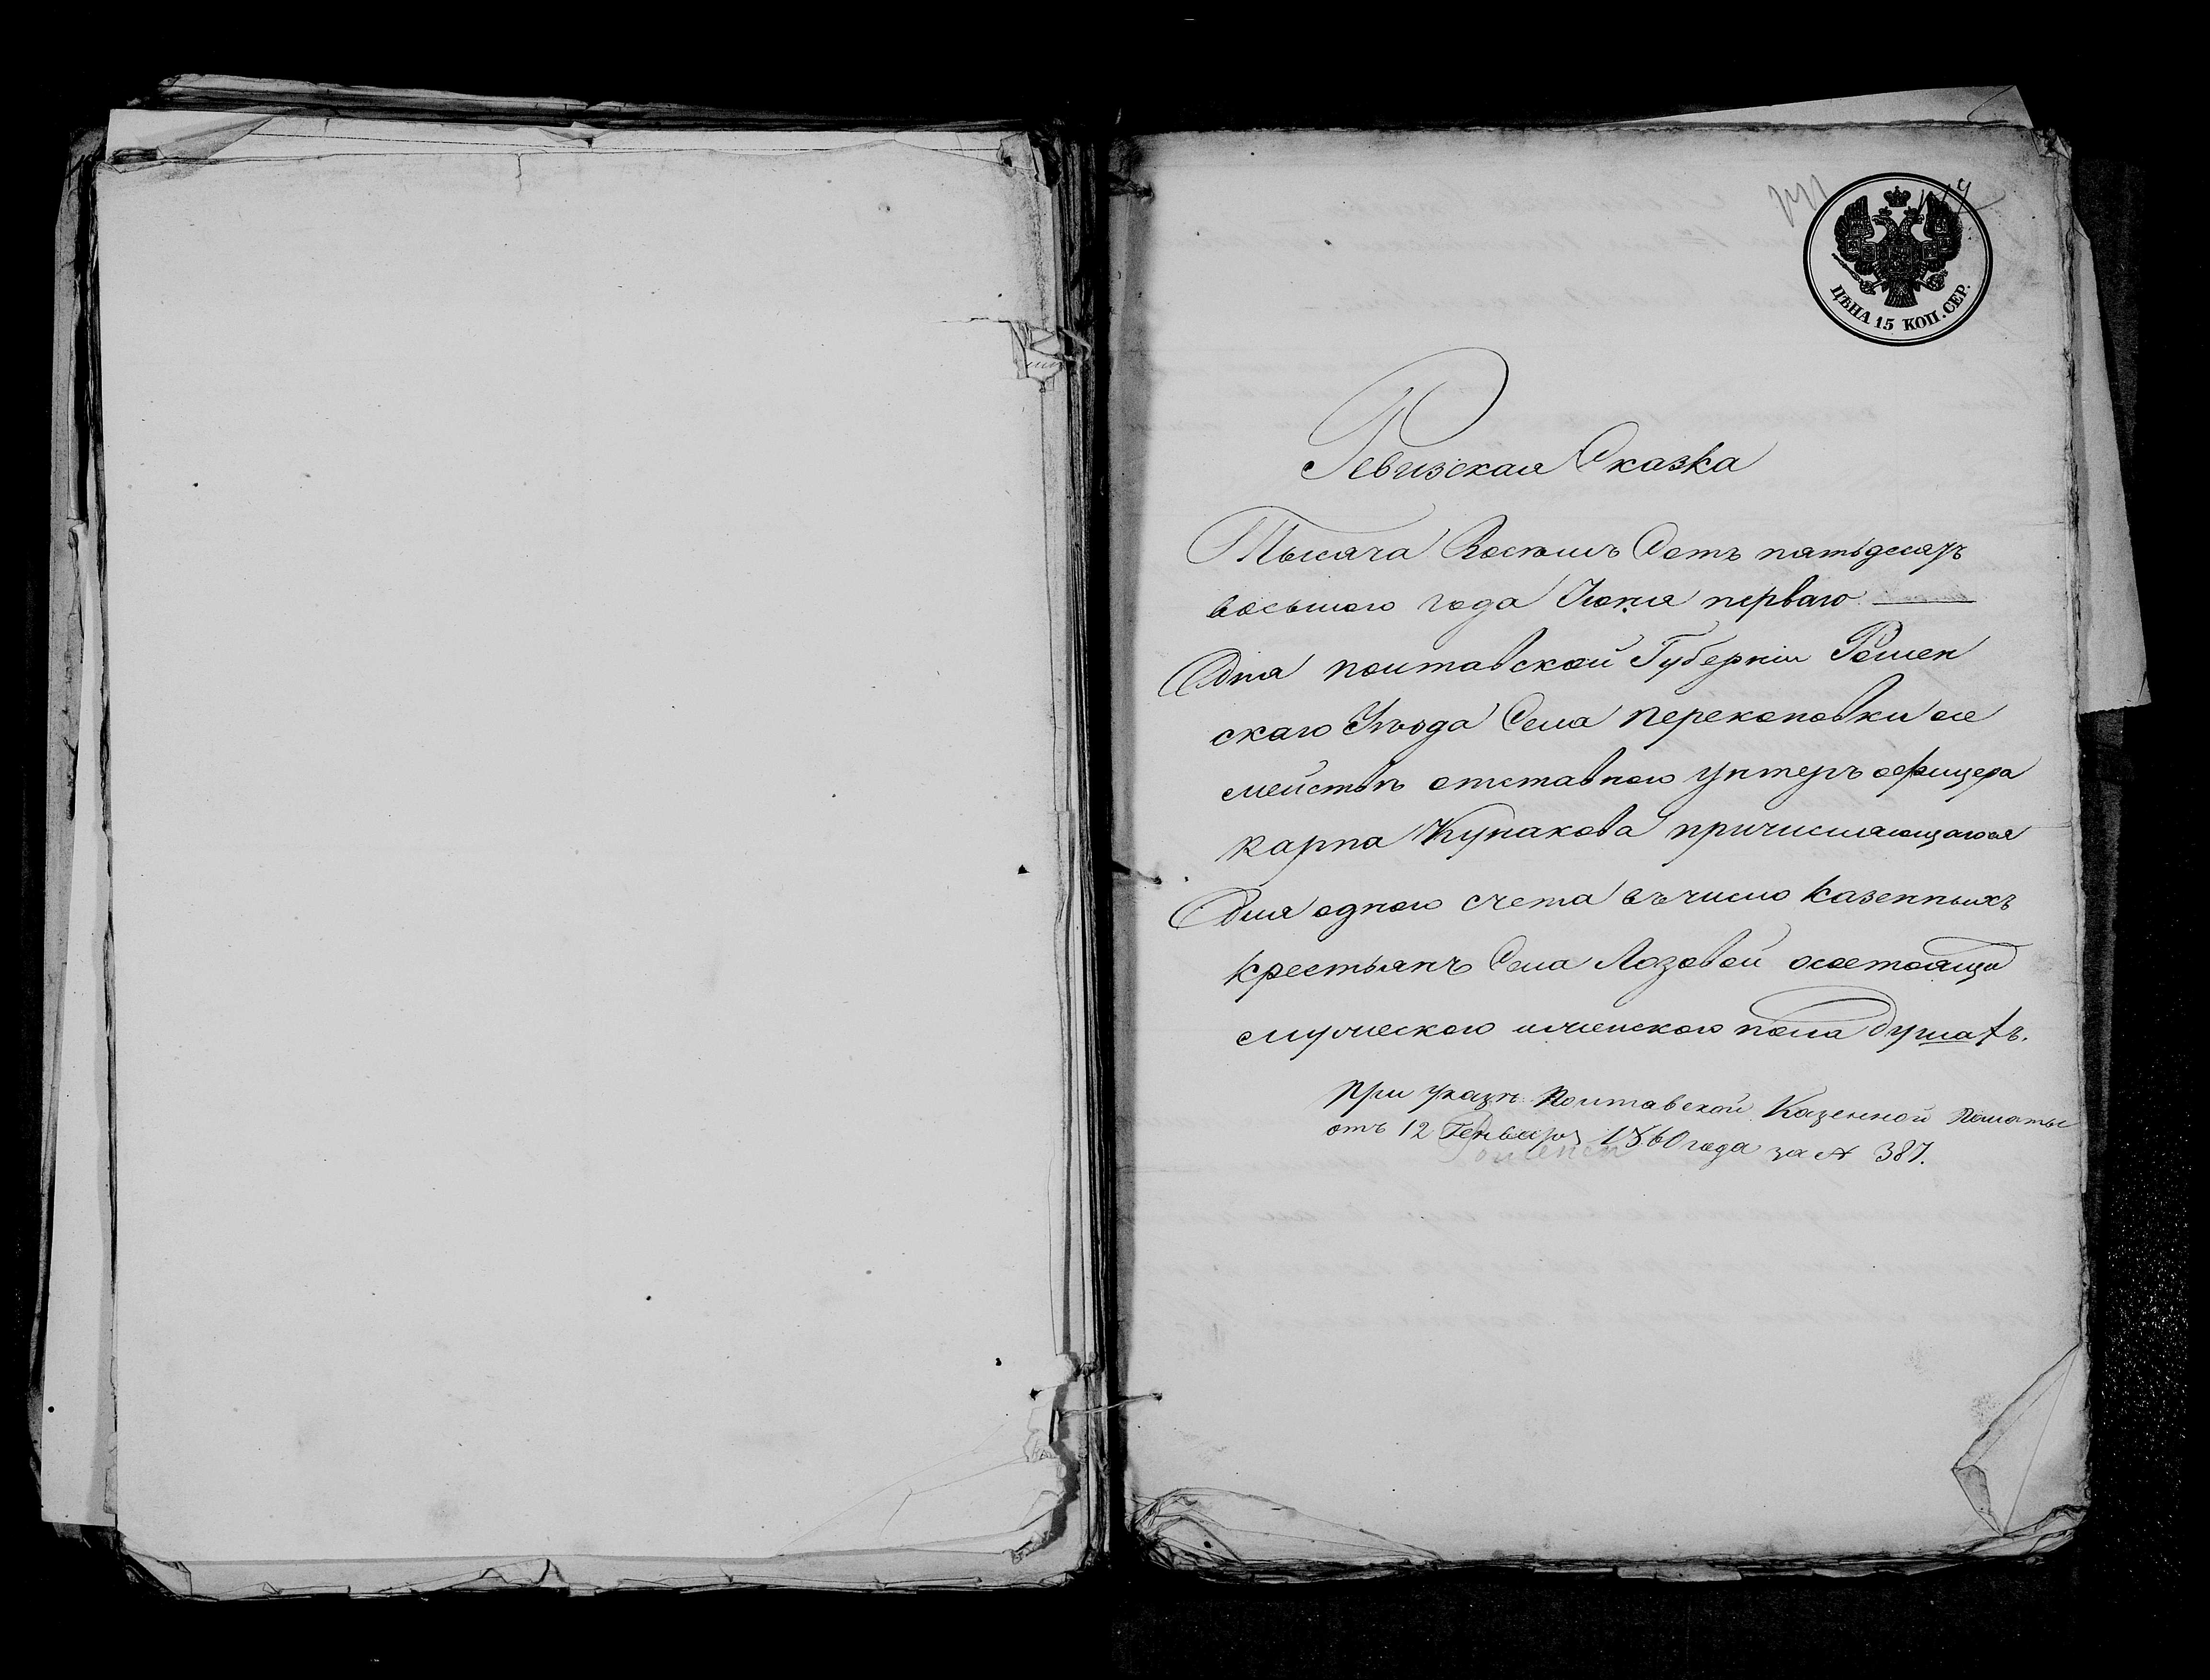 ЦѢНА 15 КОП. СЕР.
Ревизская Сказка
Тысяча Восемь Сотъ пятьдесятъ
восьмого года Июня перваго
Дня полтавской Губерніи Ромен
скаго Уезда Села перекоповки о се
мействѣ отставного унтеръ офицера
карпа Кунакова причисляющагося
Для одного счета въ число казенныхъ
крестьянъ Села Лозовой о состоящих
мужеского и женского пола душахъ.
При указѣ Полтавской Казенной Палаты
отъ 12 Генваря 1860 года за № 387.